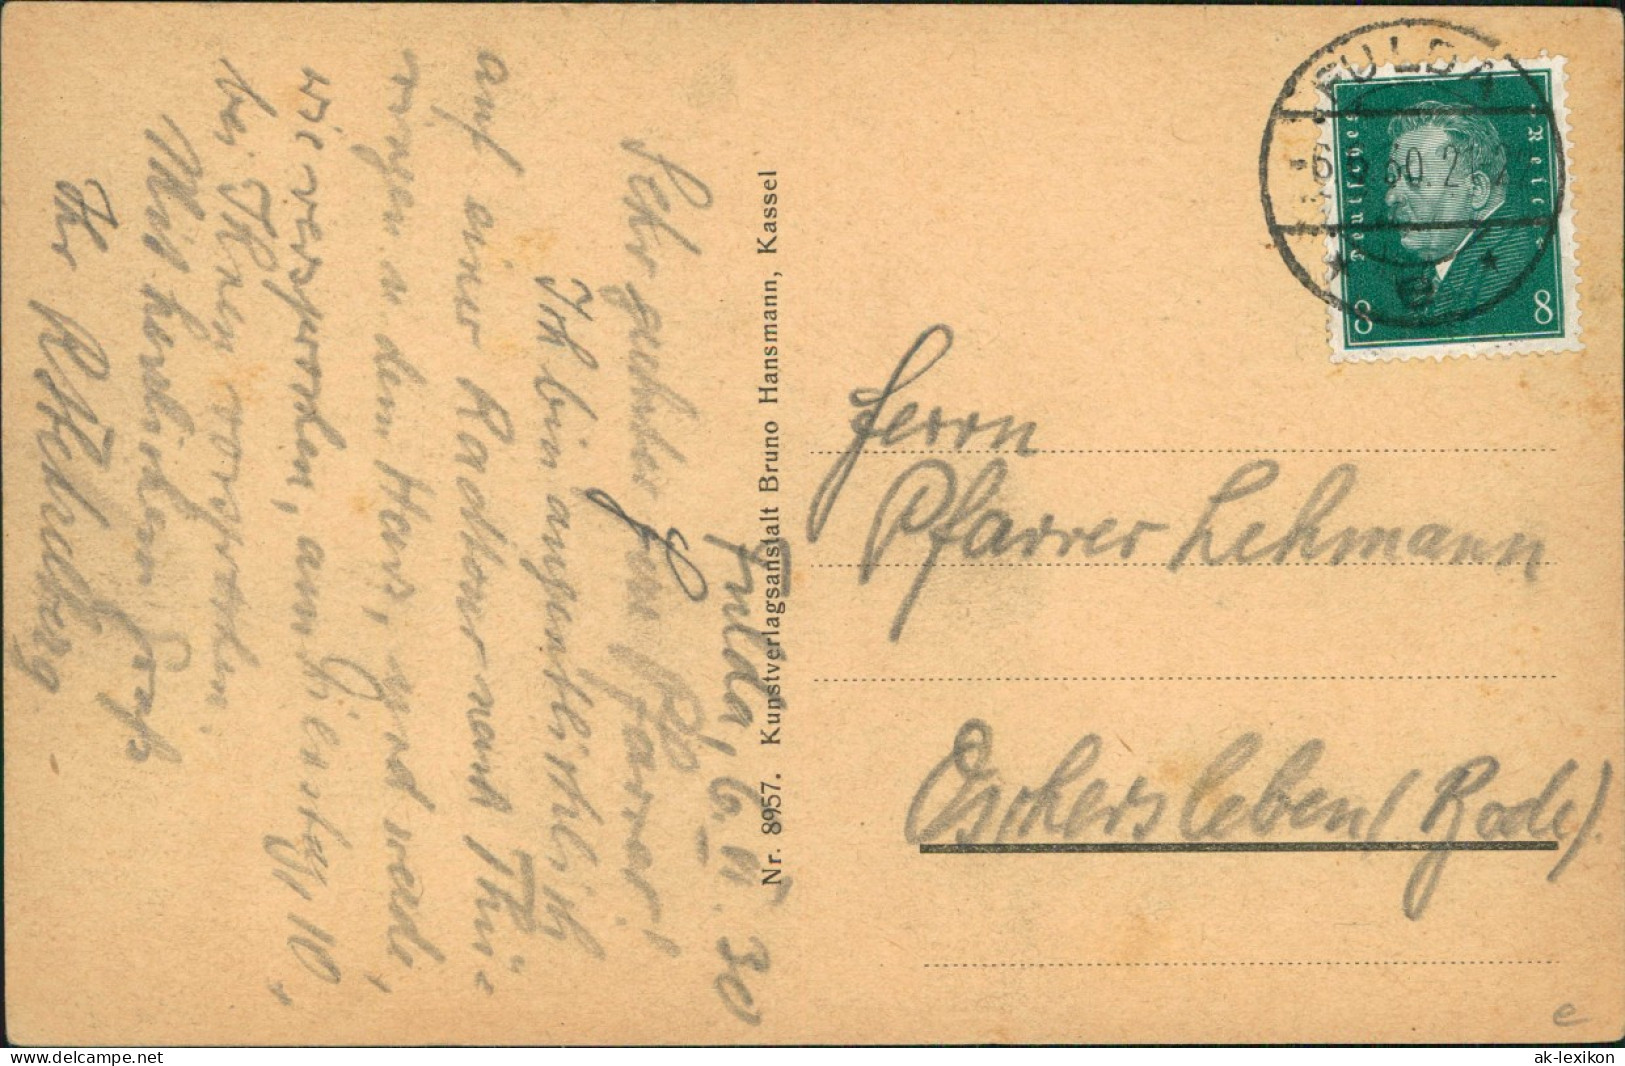 Fulda, 6. VI. 30
Sehr geehrter Herr Pfarrer!
Ich bin augenblicklich
auf einer Radtour nach Thü-
ringen u. dem Harz, und werde,
wie versprochen, am Dienstag, 10.,
bei Ihnen vorsprechen.
Mit herzlichem Gruß
Ihr
Nr. 8957. Kunstverlagsanstalt Bruno Hansmann, Kassel
FULDA
Deutsches Reich
8 8
Herrn
Pfarrer Lehmann
Oschersleben (Bode).
e
www.delcampe.net
ak-lexikon